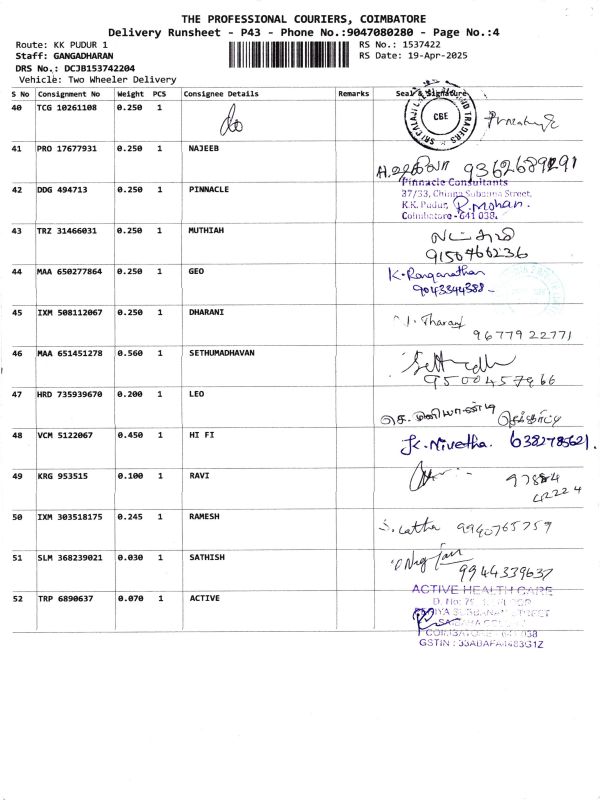 THE PROFESSIONAL COURIERS, COIMBATORE
Delivery Runsheet - P43 - Phone No.:9047080280 - Page No.:4
Route: KK PUDUR 1
RS No.: 1537422
Staff: GANGADHARAN
RS Date: 19-Apr-2025
DRS No.: DCJB153742204
Vehicle: Two Wheeler Delivery
S No Consignment No Weight PCS Consignee Details Remarks Seal & Signature
40 TCG 10261108 0.250 1
CBE
TRADERS
41 PRO 17677931 0.250 1 NAJEEB
9362689291
42 DDG 494713 0.250 1 PINNACLE
Pinnacle Consultants
37/33, Chinna Subanna Street,
K.K. Pudur, R. Mohan.
Coimbatore - 641 038.
43 TRZ 31466031 0.250 1 MUTHIAH
9150466236
44 MAA 650277864 0.250 1 GEO
K. Ranganathan
9043344388
45 IXM 508112067 0.250 1 DHARANI
Tharani
96779 22771
46 MAA 651451278 0.560 1 SETHUMADHAVAN
9500457966
47 HRD 735939670 0.200 1 LEO
48 VCM 5122067 0.450 1 HI FI
K. Nivetha. 6382785621.
49 KRG 953515 0.100 1 RAVI
50 IXM 303518175 0.245 1 RAMESH
S. Latha 9940765759
51 SLM 368239021 0.030 1 SATHISH
9944339637
52 TRP 6890637 0.070 1 ACTIVE
ACTIVE HEALTH CARE
COIMBATORE - 641 038